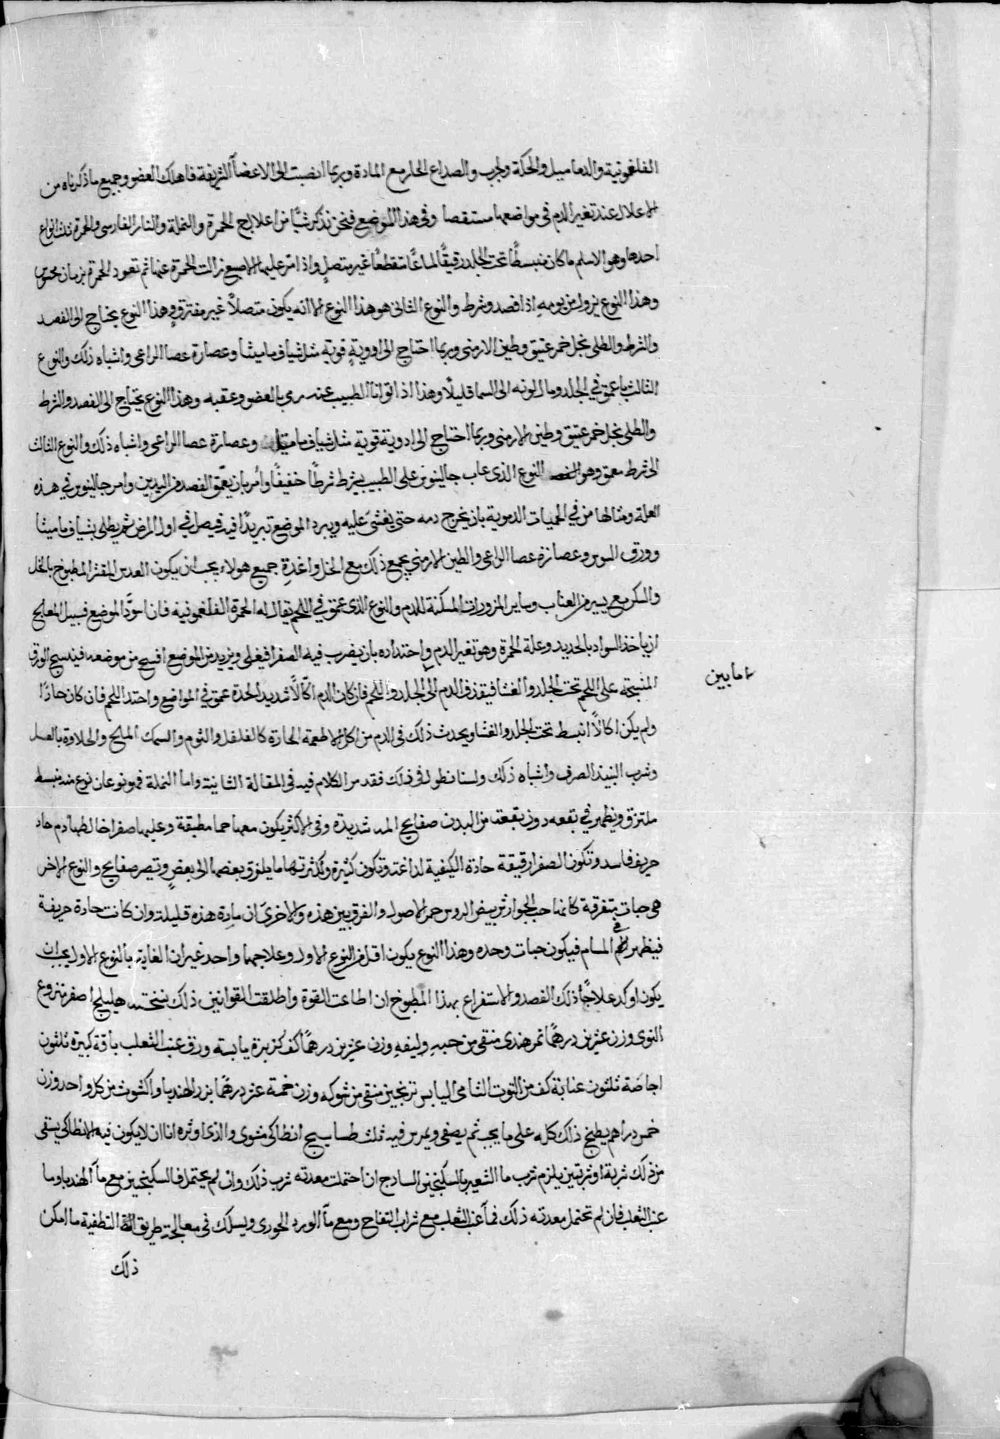 الفلغمونية والدماميل والحكة والجرب والصداع الحار مع المادة وربما انصبت الى الاعضآ الشريفة فاهلك العضو وجميع ما ذكرناه من
الاعلال عند تغير الدم فى مواضعها مستقصا وفى هذا الموضع فنحن نذكر شيًا من اعلاج الحمرة والنملة والنار الفارسى والحمرة ثلثة انواع
احدها وهو الاسلم ما كان منبسطًا تحت الجلد رقيقًا لماعًا متقطعًا غير متصل واذا امر عليها الاصبع زالت الحمرة عنها ثم تعود الحمرة بزمان محسوس
وهذا النوع يزول من يومه اذا فصد وشرط والنوع الثانى هو هذا النوع الا انه يكون متصلاً غير مفترق وهذا النوع يحتاج الى الفصد
والشرط والطلى بخل خمر عتيق وطين الارمنى وربما احتاج الى ادوية قوية مثل شياف مامينا وعصارة عصا الراعى واشباه ذلك والنوع
الثالث ما عمق فى الجلد ومال لونه الى السما قليلًا وهذا اذا توانا الطبيب عنه رمى بالعضو وعقبه وهذا النوع يحتاج الى الفصد والشرط
والطلى بخل خمر عتيق وطين الارمنى وربما احتاج الى ادوية قوية مثل شياف ماميثا وعصارة عصا الراعى واشباه ذلك والنوع الثالث
الى شرط معمق وهو النوع الذى عاب جالينوس على الطبيب بشرط شرطًا خفيفًا وأمر بان يعمق الفصد من اليدين وامر جالينوس فى هذه
العلة وامثالها من فى الحميات الدموية بان يخرج دمه حتى يغشى عليه ويبرد الموضع تبريدًا فيه فيصل فى اول المرض ثم يطلى بشياف ماميثا
وورق السوس وعصارة عصا الراعى والطين الارمنى يجمع ذلك مع الخل واغذية جميع هولاء يجب ان يكون العدس المقشر المطبوخ بالخل
والسكر مع يسير من العناب وساير المزورات المسكنة للدم والنوع الذى عمق فى اللحم يقال له الحمرة الفلغمونيه فان اسودّ الموضع فسبيل المعالج
ان ياخذ السواد بالحديد وعلة الحمرة وهو تغير الدم واحتداده بان يضرب فيه الصفرا فيغلى ويزيد من الموضع افسح من موضعه فيندسج الورق
المنسجة على اللحم تحت الجلد والغشا فيقذف الدم الى الجلد واللحم فان كان الدم اكّالًا شديد الحدة عمق فى المواضع واحتد اللحم فان كان حادًا
ولم يكن اكالًا انبسط تحت الجلد والغشا ويحدث ذلك فى الدم من اكل الاطعمة الحارة كالفلفل والثوم والسمك المليح والحلاوة بالعسل
وشرب النبيذ الصرف واشباه ذلك ولسنا نطول فى ذلك فقد مر الكلام فيه فى المقالة الثانية واما النملة فهو نوعان نوع منه منبسط
ملتزق ويظهر فى بقعه دون بقعة من البدن صفايح شديدة وفى الاكثر يكون معها حما مطبقة وعليها صفرا خالطها دم حاد
حريف فاسد وتكون الصفرا رقيقة حادة الكيفية لذاعة وتكون كثيرة ولكثرتها ما يلزق بعضها الى بعض وتصير صفايح والنوع الاخر
هى حبات متفرقة كانها حب الجوارش بيض الروس حمر الاصول والفرق بين هذه والاخرى ان مادة هذه قليلة وان كانت حارة حريفة
فيظهر فى فم المسام فيكون حبات وحده وهذا النوع يكون اقل من النوع الاول وعلاجهما واحد غير ان العناية بالنوع الاول يجب ان
يكون اوكد علاجًا ذلك الفصد والاستفراغ بهذا المطبوخ ان اطاعت القوة واطلقت القوانين ذلك نسخته هليلج اصفر منزوع
النوى وزن عشرين درهمًا تمر هندى منقى من حبه وليفه وزن عشرين درهمًا كف كزبرة يابسة ورق عنب الثعلب باقة كبيرة ثلثون
اجاصة ثلثون عنابة كف من التوت الشامى اليابس ترنجبين منقى من شوكه وزن خمسة عشر درهمًا بزر الهندبا والكشوث من كل واحد وزن
خمس دراهم يطبخ ذلك كله على ما يجب ثم يصفى ويمرس فيه ثلث طساسيج انطاكى مشوى والذى اوثره انا ان لا يكون فيه الانطاكى يسقى
من ذلك شربة او شربتين يلزم شرب ما الشعير بالسكنجبين السادج ان احتملت معدته شرب ذلك وان لم يحتمل فالسكنجبين مع مآ الهندبا وما
عنب الثعلب فان لم تحتمل معدته ذلك فمآ عنب الثعلب مع شراب التفاح ومع مآ الورد الجورى ويسلك فى معالجته طريق التطفية ما امكن
ذلك